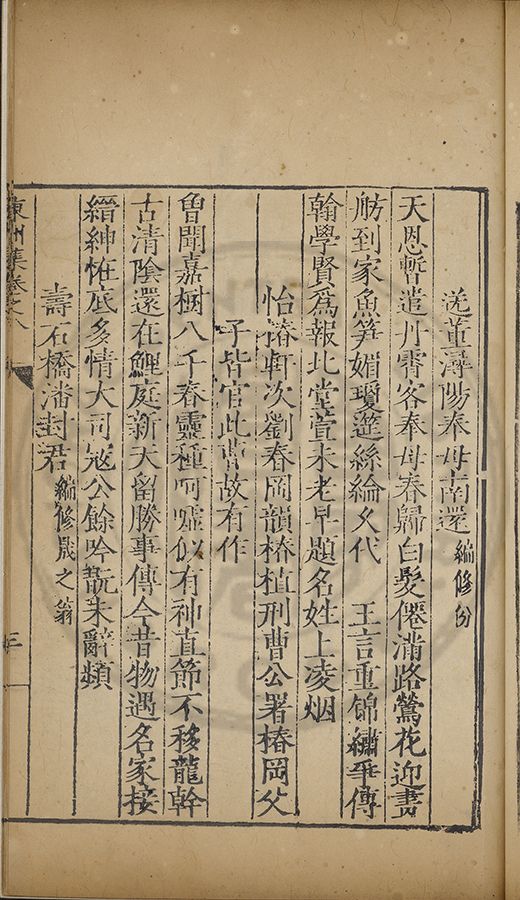 送董潯陽奉母南還編修份
天恩暫遣丹霄客奉母春歸白髮僊滿路鶯花迎畫
舫到家魚笋媚瓊筵絲綸久代　王言重錦繡爭傳
翰學賢爲報北堂萱未老早題名姓上凌烟
怡椿軒次劉春岡韻椿植刑曹公署椿岡父
子皆官此曹故有作
曾聞嘉樹八千春靈種呵噓似有神直節不移龍幹
古清陰還在鯉庭新天留勝事傳今昔物遇名家接
縉紳恠底多情大司冦公餘吟翫未辭頻
壽石橋潘封君編修晟之翁
東州集卷之八
三